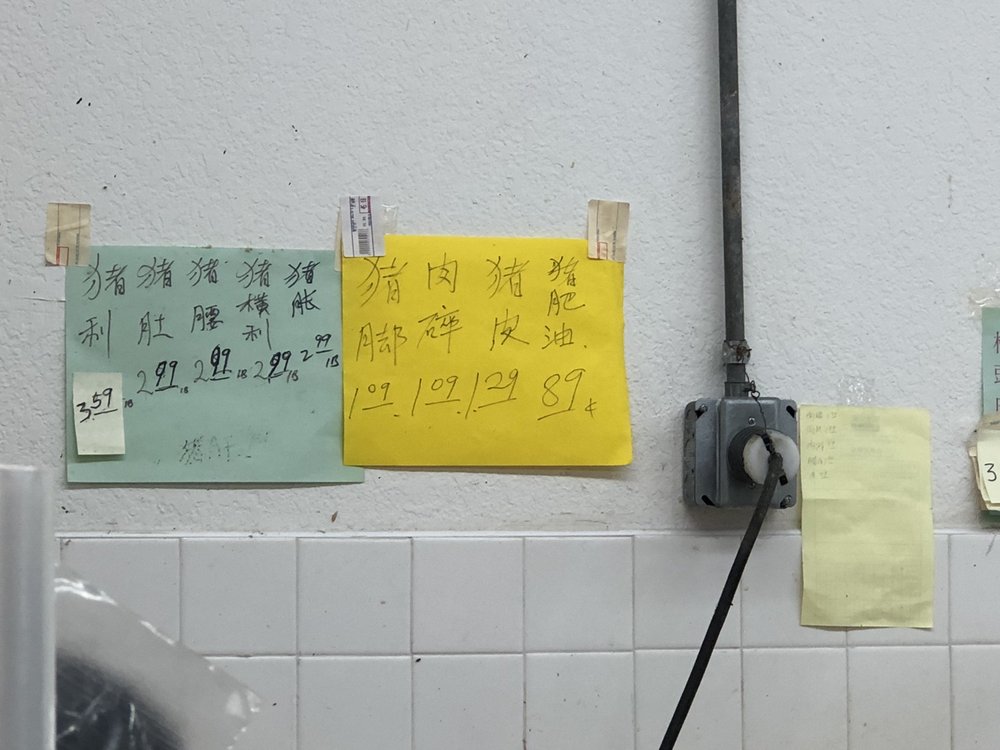 猪利
猪肚
猪腰
猪横利
猪胀
3.59 lB
2.99 lB
2.99 lB
2.99 lB
2.99 lB
猪脚
肉碎
猪皮
猪肥油.
1.09.
1.09.
1.29
89¢
3